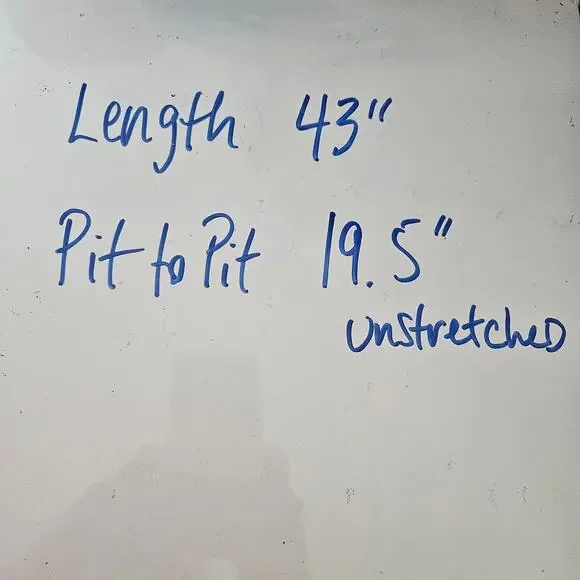 Length 43"
Pit to Pit 19.5"
unstretched